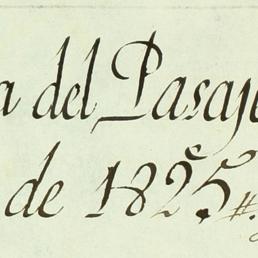 a del Pasaje
de 1825